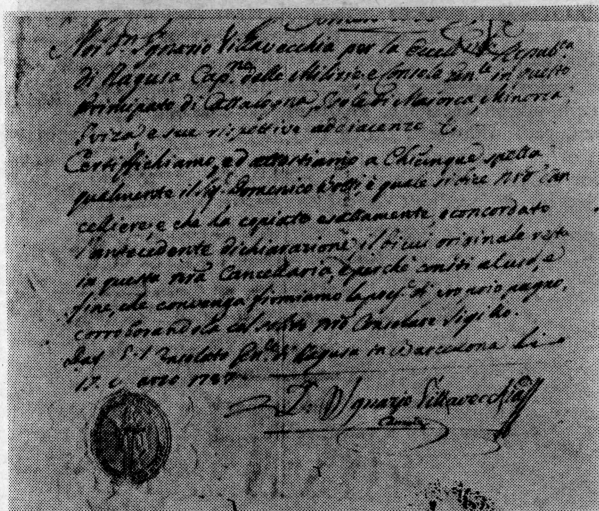 Noi Dn. Ignazio Villavecchia per la Repub.ca
di Ragusa Cap.no delle Milizie, e Console Gen.le in questo
Principato di Catalogna, Isole di Maiorca, Minorca,
Iviza, e sue rispettive addiacenze &
Certifichiamo, ed attestiamo a Chiunque spetta
qualmente il Sig. Domenico è quale si dice nro Can
celliere, e che ha copiato esattamente, e concordato
l'antecedente dichiarazione, il di cui originale resta
in questa nra Cancellaria, e perchè consti al uso, e
fine, che convenga firmiamo la pres.e di proprio pugno,
corroborandola col nro Consolare Sigillo.
Dal Consolato Gen.le di Ragusa in Barcelona li
17. Marzo
Dn. Ignazio Villavecchia